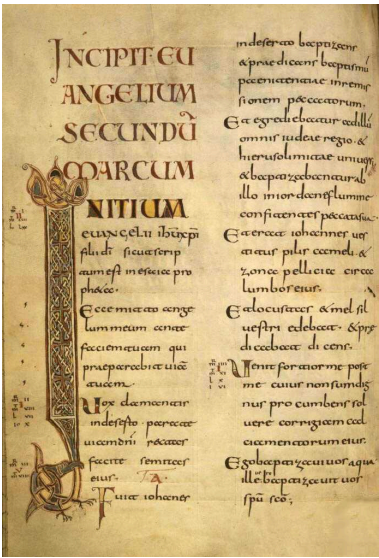 INCIPIT EU
ANGELIUM
SECUNDŪ
MARCUM
INITIUM
euangelii ihu xpi
filii di sicut scrip
tum est in esaia pro
pheta·
Ecce mitto ange
lum meum ante
faciem tuam qui
praeparabit uiā
tuam
Uox clamantis
in deserto · parate
uiam dni rectas
facite semitas
eius·
Fuit iohannes
in deserto baptizans
& praedicans baptismū
paenitentiae in remis
sionem peccatorum·
Et egrediebatur ad illū
omnis iudeae regio · &
hierusolimitae uniuersi
& baptizabantur ab
illo in iordane flumine
confitentes peccata sua·
Et erat iohannes ues
titus pilis cameli · &
zona pellicia circa
lumbos eius·
Et locustas & mel sil
uestri edebat · & prae
dicabat dicens·
Uenit fortior me post
me cuius non sum dig
nus procumbens sol
uere corrigiam cal
ciamentorum eius·
Ego baptizaui uos aqua
ille baptizauit uos
spū scō;